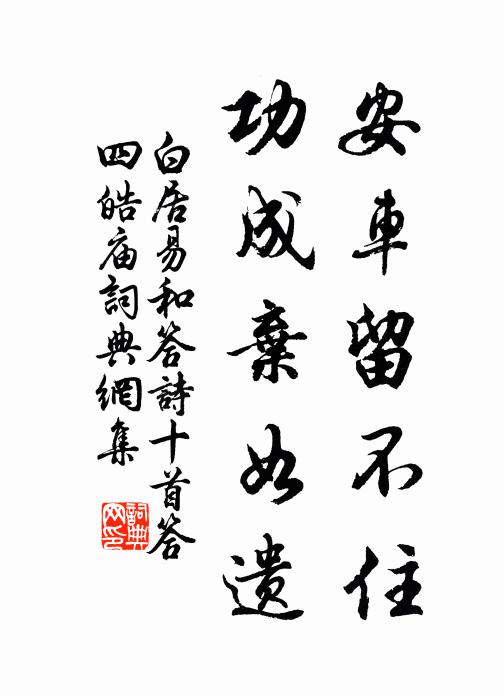 安車留不住
功成棄如遺
白居易和答詩十首答
四皓庙詞典網集
詞典网印